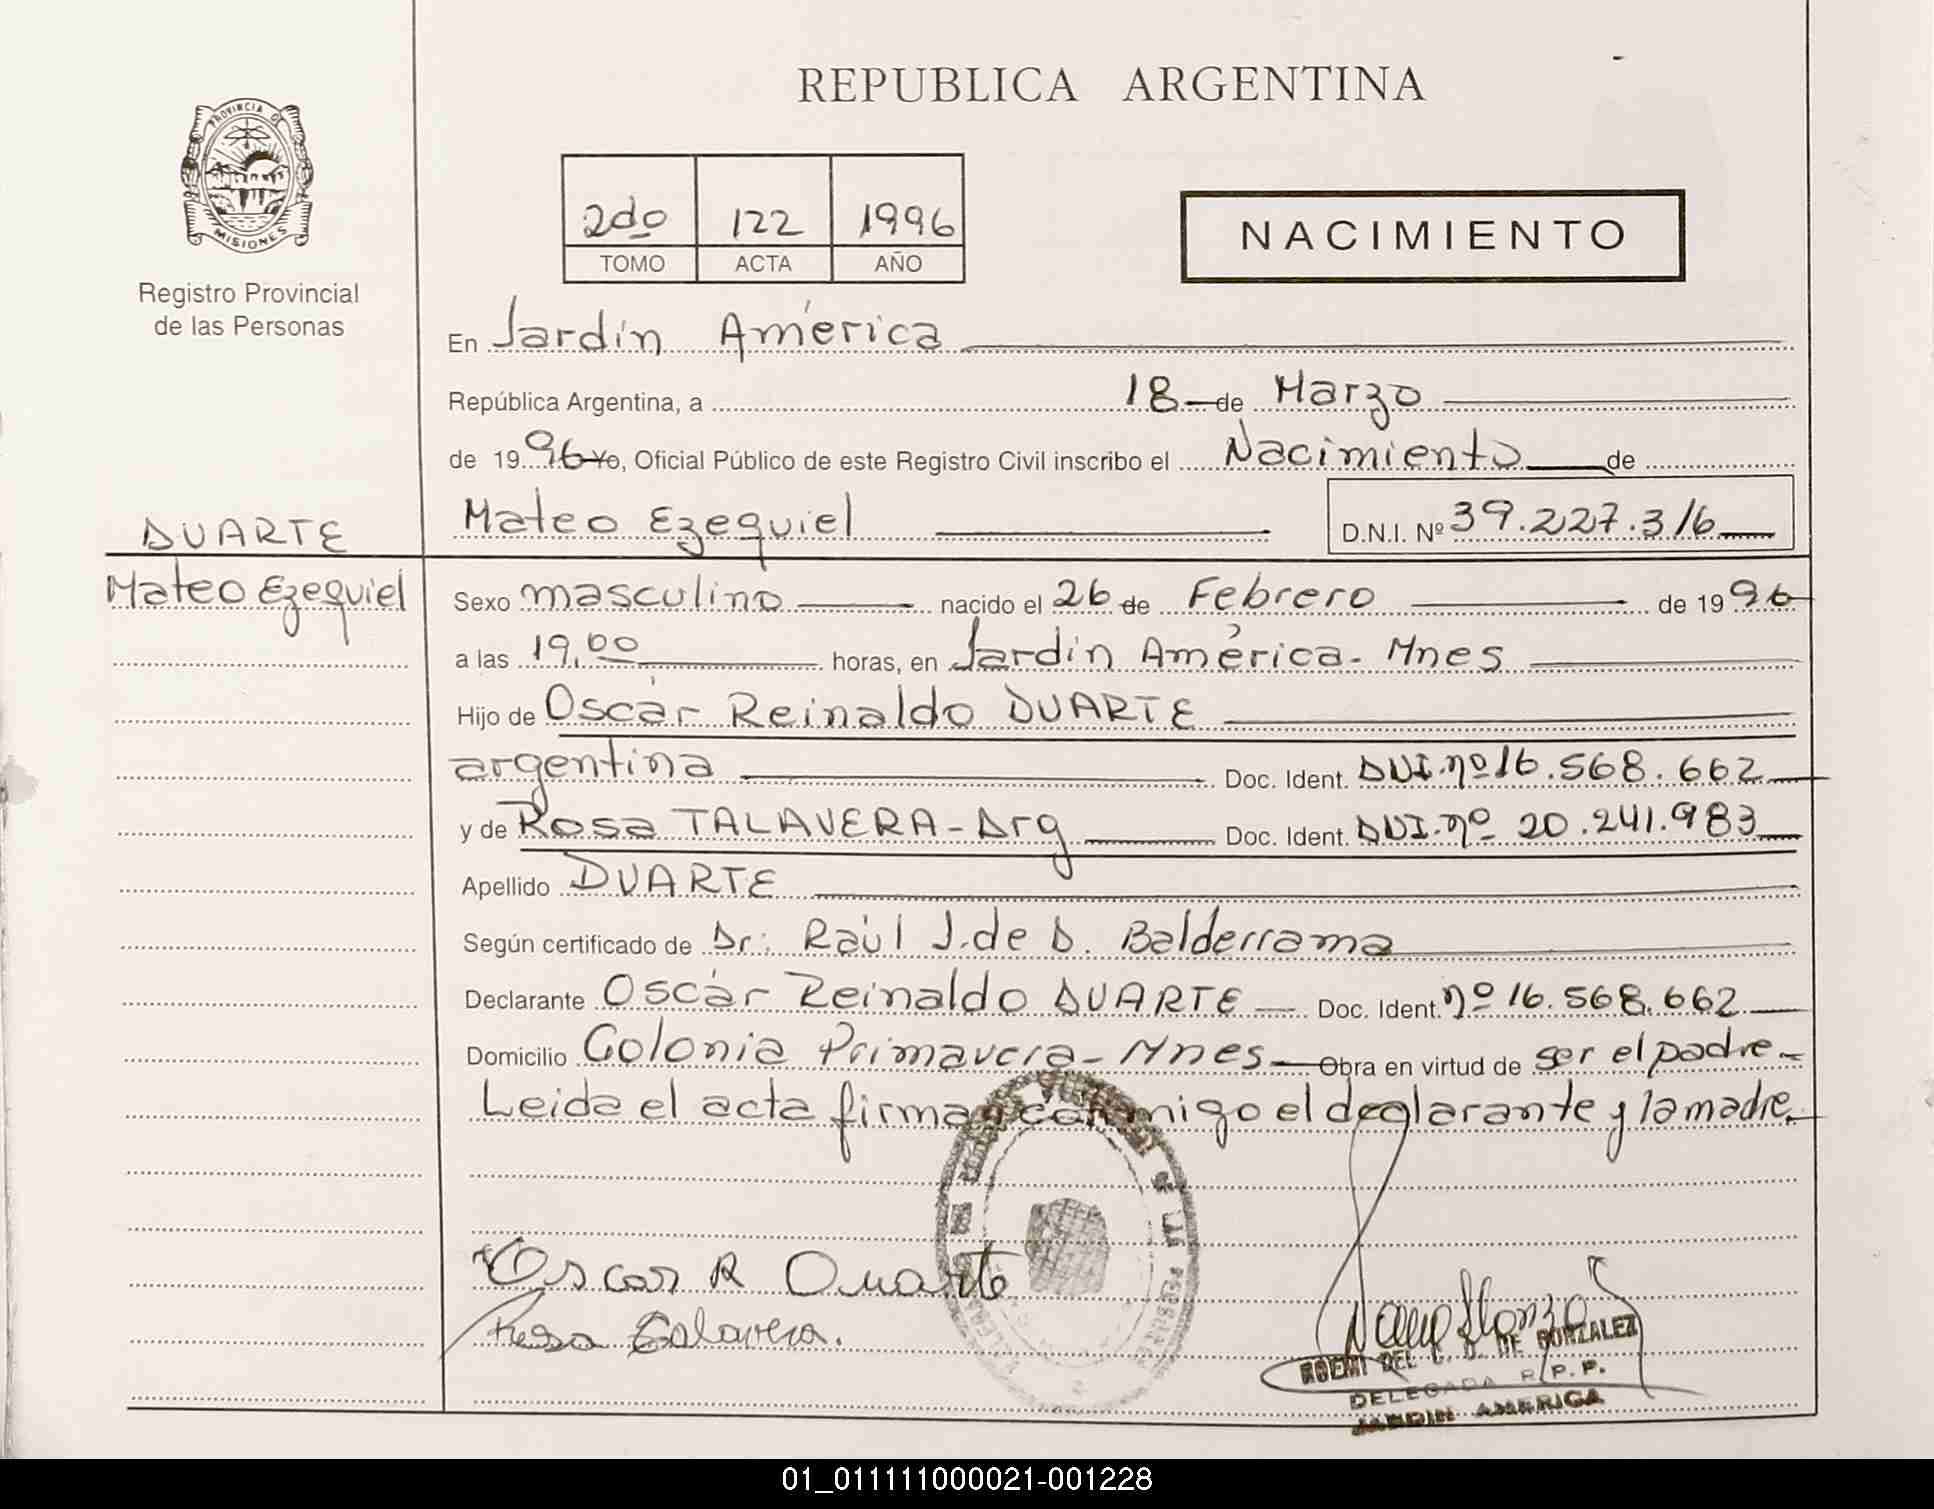 REPUBLICA ARGENTINA
PROVINCIA DE
MISIONES
Registro Provincial
de las Personas
2do 122 1996
TOMO ACTA AÑO
NACIMIENTO
En Jardín América
República Argentina, a 18 de Marzo
de 1996 Yo, Oficial Público de este Registro Civil inscribo el Nacimiento de
Mateo Ezequiel D.N.I. Nº 39.227.316
DUARTE
Mateo Ezequiel
Sexo masculino nacido el 26 de Febrero de 1996
a las 19,00 horas, en Jardín América - Mnes
Hijo de Oscár Reinaldo DUARTE
argentina Doc. Ident. DNI.nº 16.568.662
y de Rosa TALAVERA - Arg Doc. Ident. DNI.nº 20.241.983
Apellido DUARTE
Según certificado de Dr: Raúl J. de D. Balderrama
Declarante Oscár Reinaldo DUARTE Doc. Ident. nº 16.568.662
Domicilio Colonia Primavera - Mnes Obra en virtud de ser el padre
Leida el acta firman conmigo el declarante y la madre.
Oscar R Duarte
Rosa Talavera.
NOEMI DEL C. DE GONZALEZ
DELEGADA R.P.P.
JARDIN AMERICA
01_011111000021-001228